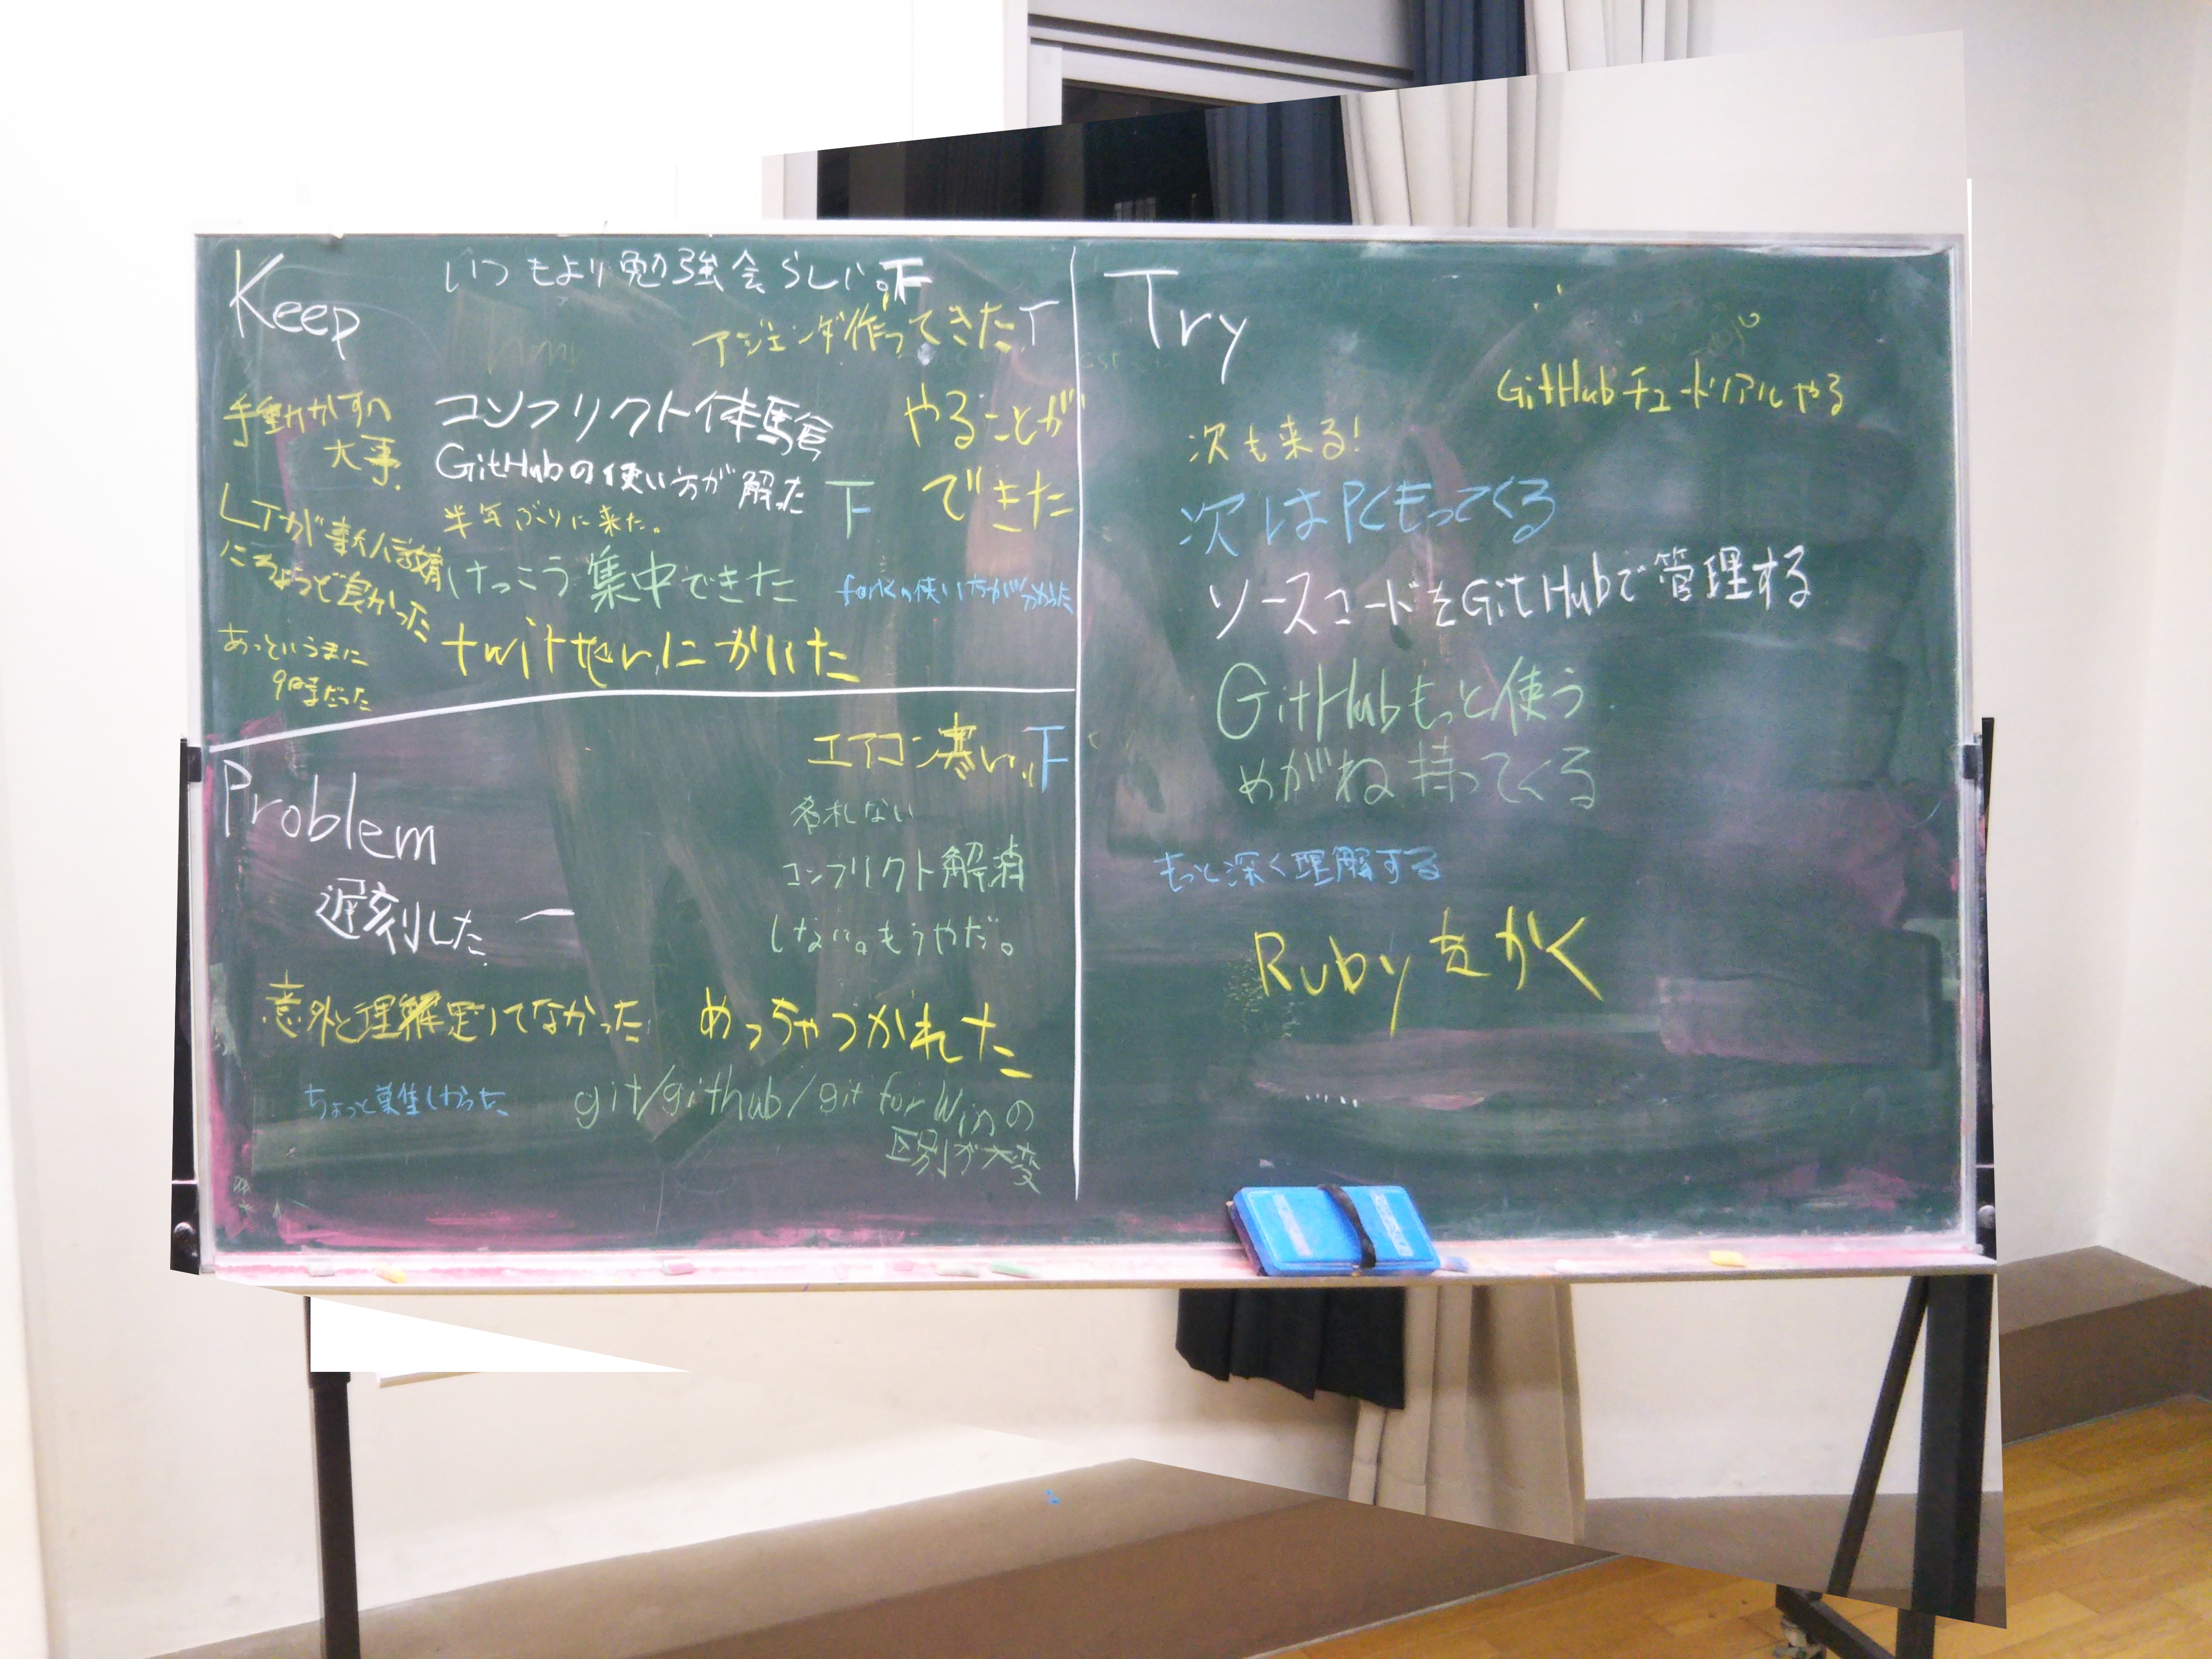 Keep
いつもより勉強会らしい。
アジェンダ作ってきた
手動かすの
大事.
コンフリクト体験
GitHubの使い方が解った
やることが
できた
LTが新人教育
にちょうど良かった
半年ぶりに来た。
けっこう集中できた
forkの使い方が分かった
あっというまに
9時だった
twitせいにかいた
Problem
エアコン寒い
名札ない
コンフリクト解消
しない。もうやだ。
遅刻した
意外と理解してなかった
めっちゃつかれた
ちょっと
git/github/git for Winの
区別が大変
Try
GitHubチュートリアルやる
次も来る!
次はPCもってくる
ソースコードをGitHubで管理する
GitHubもっと使う
めがね持ってくる
もっと深く理解する
Rubyをかく